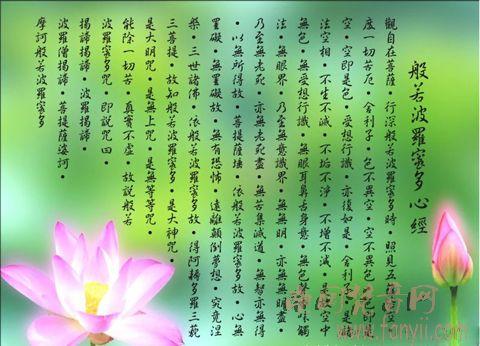 般若波羅蜜多心經
觀自在菩薩•行深般若波羅蜜多時•照見五蘊皆空•
度一切苦厄•舍利子•色不異空•空不異色•色即是
空•空即是色•受想行識•亦復如是•舍利子•是諸
法空相•不生不滅•不垢不淨•不增不減•是故空中
無色•無受想行識•無眼耳鼻舌身意•無色聲香味觸
法•無眼界•乃至無意識界•無無明•亦無無明盡•
乃至無老死•亦無老死盡•無苦集滅道•無智亦無得
•以無所得故•菩提薩埵•依般若波羅蜜多故•心無
罣礙•無罣礙故•無有恐怖•遠離顛倒夢想•究竟涅
槃•三世諸佛•依般若波羅蜜多故•得阿耨多羅三藐
三菩提•故知般若波羅蜜多•是大神咒•
是大明咒•是無上咒•是無等等咒•
能除一切苦•真實不虛•故說般若
波羅蜜多咒•即說咒曰•
揭諦揭諦•波羅揭諦•
波羅僧揭諦•菩提薩婆訶•
摩訶般若波羅蜜多
www.fanyii.com